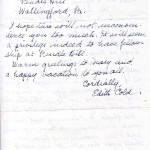 Pendle Hill
Wallingford, Pa.
I hope this will not inconven-
ience you too much. It will seem
a privilege indeed to have fellow-
ship at Pendle Hill.
Warm greetings to Mary and
a happy vacation to you all.
Cordially,
Edith Cold.